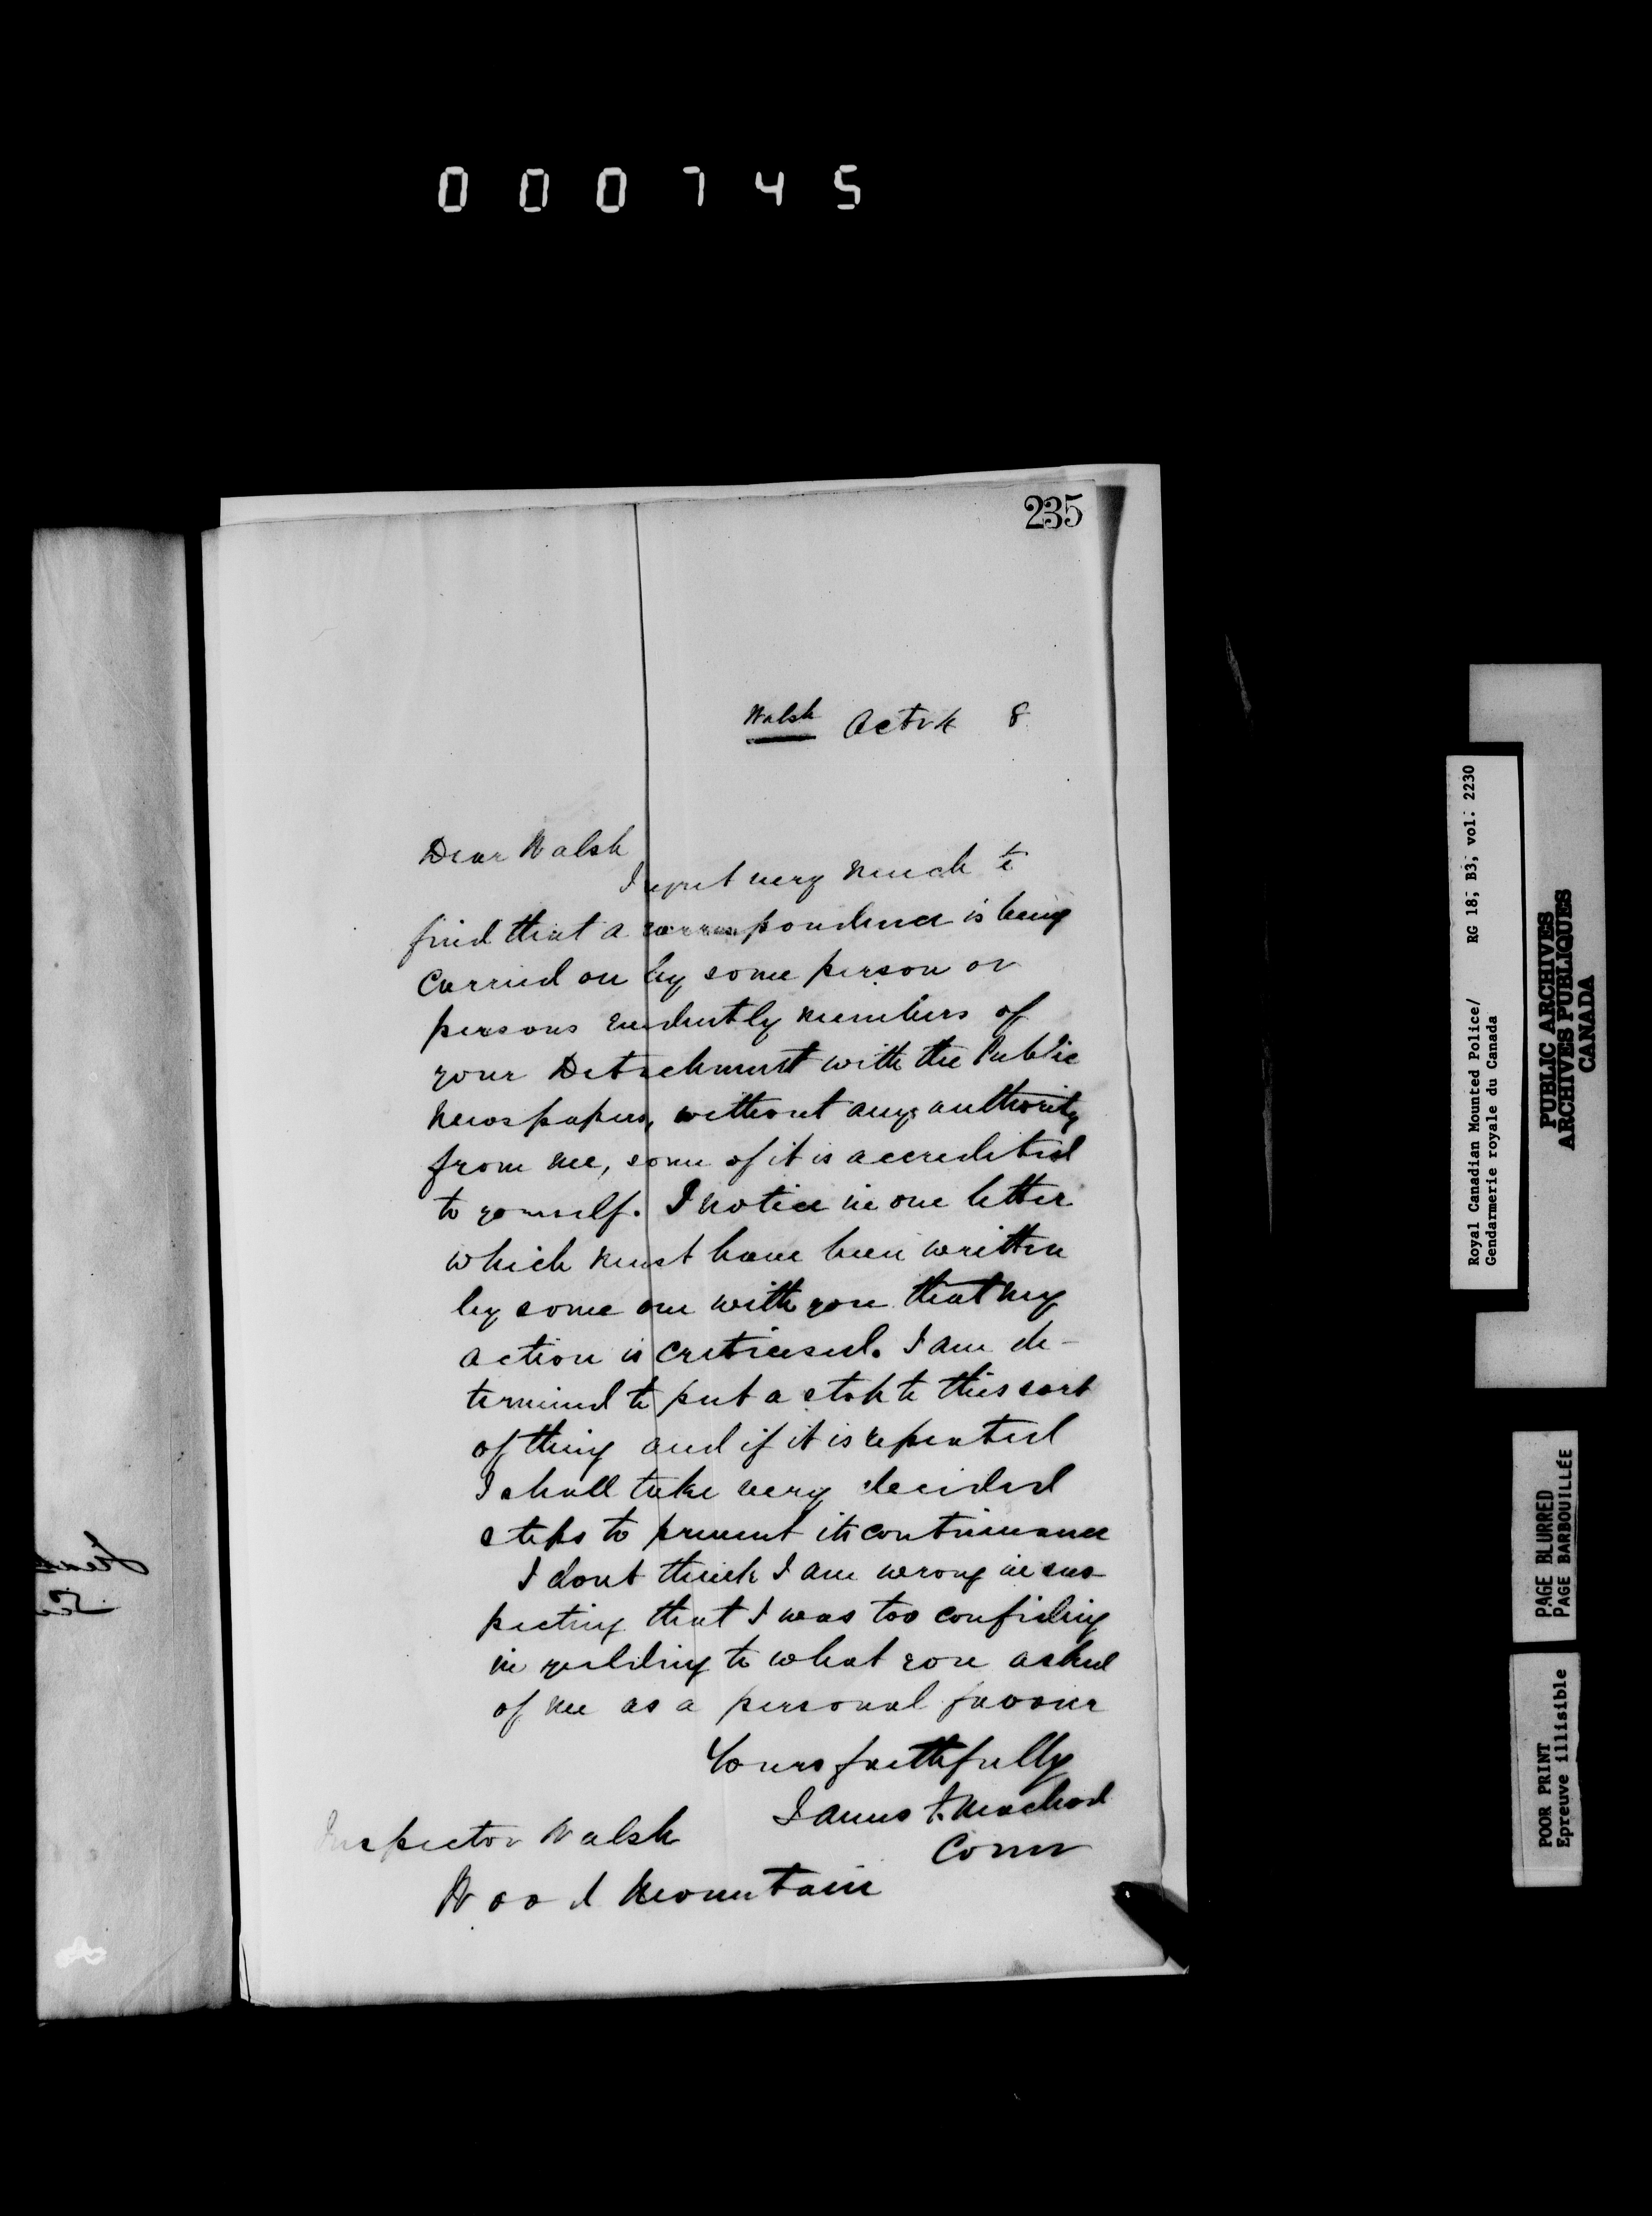 000745
235
Walsh Octr 4 8
Dear Walsh
I regret very much to
find that a correspondence is being
carried on by some person or
persons evidently members of
your Detachment with the Public
Newspapers, without any authority
from me, some of it is accredited
to yourself. I notice in one letter
which must have been written
by some one with you that my
action is criticised. I am de-
termined to put a stop to this sort
of thing and if it is repeated
I shall take very decided
steps to prevent its continuance
I dont think I am wrong in sus-
pecting that I was too confiding
in yielding to what you asked
of me as a personal favour
Yours faithfully
James F. Macleod
Comr
Inspector Walsh
Wood Mountain
Royal Canadian Mounted Police/ RG 18, B3, vol. 2230
Gendarmerie royale du Canada
PUBLIC ARCHIVES
ARCHIVES PUBLIQUES
CANADA
PAGE BLURRED
PAGE BARBOUILLÉE
POOR PRINT
Epreuve illisible